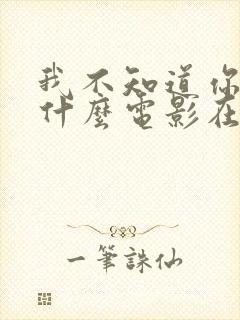 我不知道你
什麼電影在
一筆誅仙